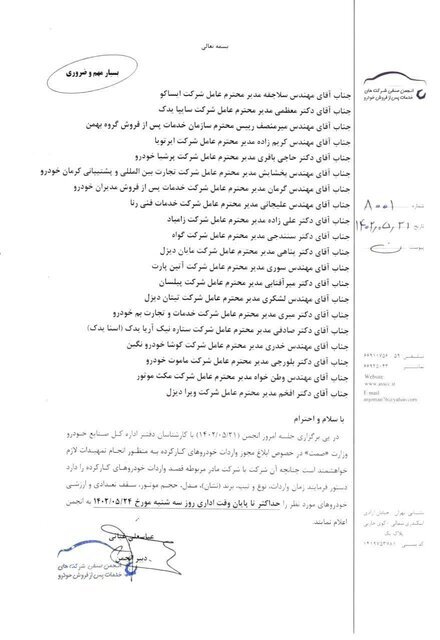 بسمه تعالی
بسیار مهم و ضروری
انجمن صنفی شرکت های
خدمات پس از فروش خودرو
شماره ۸۰۰۱
تاریخ ۱۴۰۲,۰۵,۲۱
پیوست
جناب آقای مهندس سلاجقه مدیر محترم عامل شرکت ایساکو
جناب آقای دکتر معظمی مدیر محترم عامل شرکت سایپا یدک
جناب آقای مهندس میرمنصف رییس محترم سازمان خدمات پس از فروش گروه بهمن
جناب آقای مهندس کریم زاده مدیر محترم عامل شرکت ایرتویا
جناب آقای دکتر حاجی باقری مدیر محترم عامل شرکت پرشیا خودرو
جناب آقای مهندس بخشایش مدیر محترم عامل شرکت تجارت بین المللی و پشتیبانی کرمان خودرو
جناب آقای مهندس گرمان مدیر محترم عامل شرکت خدمات پس از فروش مدیران خودرو
جناب آقای مهندس علیجانی مدیر محترم عامل شرکت خدمات فنی رنا
جناب آقای دکتر علی زاده مدیر محترم عامل شرکت زامیاد
جناب آقای دکتر سنندجی مدیر محترم عامل شرکت گواه
جناب آقای دکتر پناهی مدیر محترم عامل شرکت مایان دیزل
جناب آقای مهندس سوری مدیر محترم عامل شرکت آتین پارت
جناب آقای دکتر میرآفتابی مدیر محترم عامل شرکت پیلسان
جناب آقای مهندس لشگری مدیر محترم عامل شرکت تیتان دیزل
جناب آقای دکتر میری مدیر محترم عامل شرکت خدمات و تجارت بم خودرو
جناب آقای دکتر صادقی مدیر محترم عامل شرکت ستاره نیک آریا یدک (اسنا یدک)
جناب آقای مهندس خدری مدیر محترم عامل شرکت کوشا خودرو نگین
جناب آقای دکتر بلورچی مدیر محترم عامل شرکت ماموت خودرو
جناب آقای مهندس وطن خواه مدیر محترم عامل شرکت مکث موتور
جناب آقای دکتر افخم مدیر محترم عامل شرکت ویرا دیزل
با سلام و احترام
در پی برگزاری جلسه امروز انجمن (۱۴۰۲/۰۵/۲۱) با کارشناسان دفتر اداره کل صنایع خودرو
وزارت «صمت» در خصوص ابلاغ مجوز واردات خودروهای کارکرده به منظور انجام تمهیدات لازم
خواهشمند است چنانچه آن شرکت یا شرکت مادر مربوطه قصد واردات خودروهای کارکرده را دارد
دستور فرمایند زمان واردات، نوع و تیپ، برند (نشان)، مدل، حجم موتور، سقف تعدادی و ارزشی
خودروهای مورد نظر را حداکثر تا پایان وقت اداری روز سه شنبه مورخ ۱۴۰۲/۰۵/۲۴ به انجمن
اعلام نمایند.
دبیر انجمن
انجمن صنفی شرکت های
خدمات پس از فروش خودرو
Website:
E-mail: